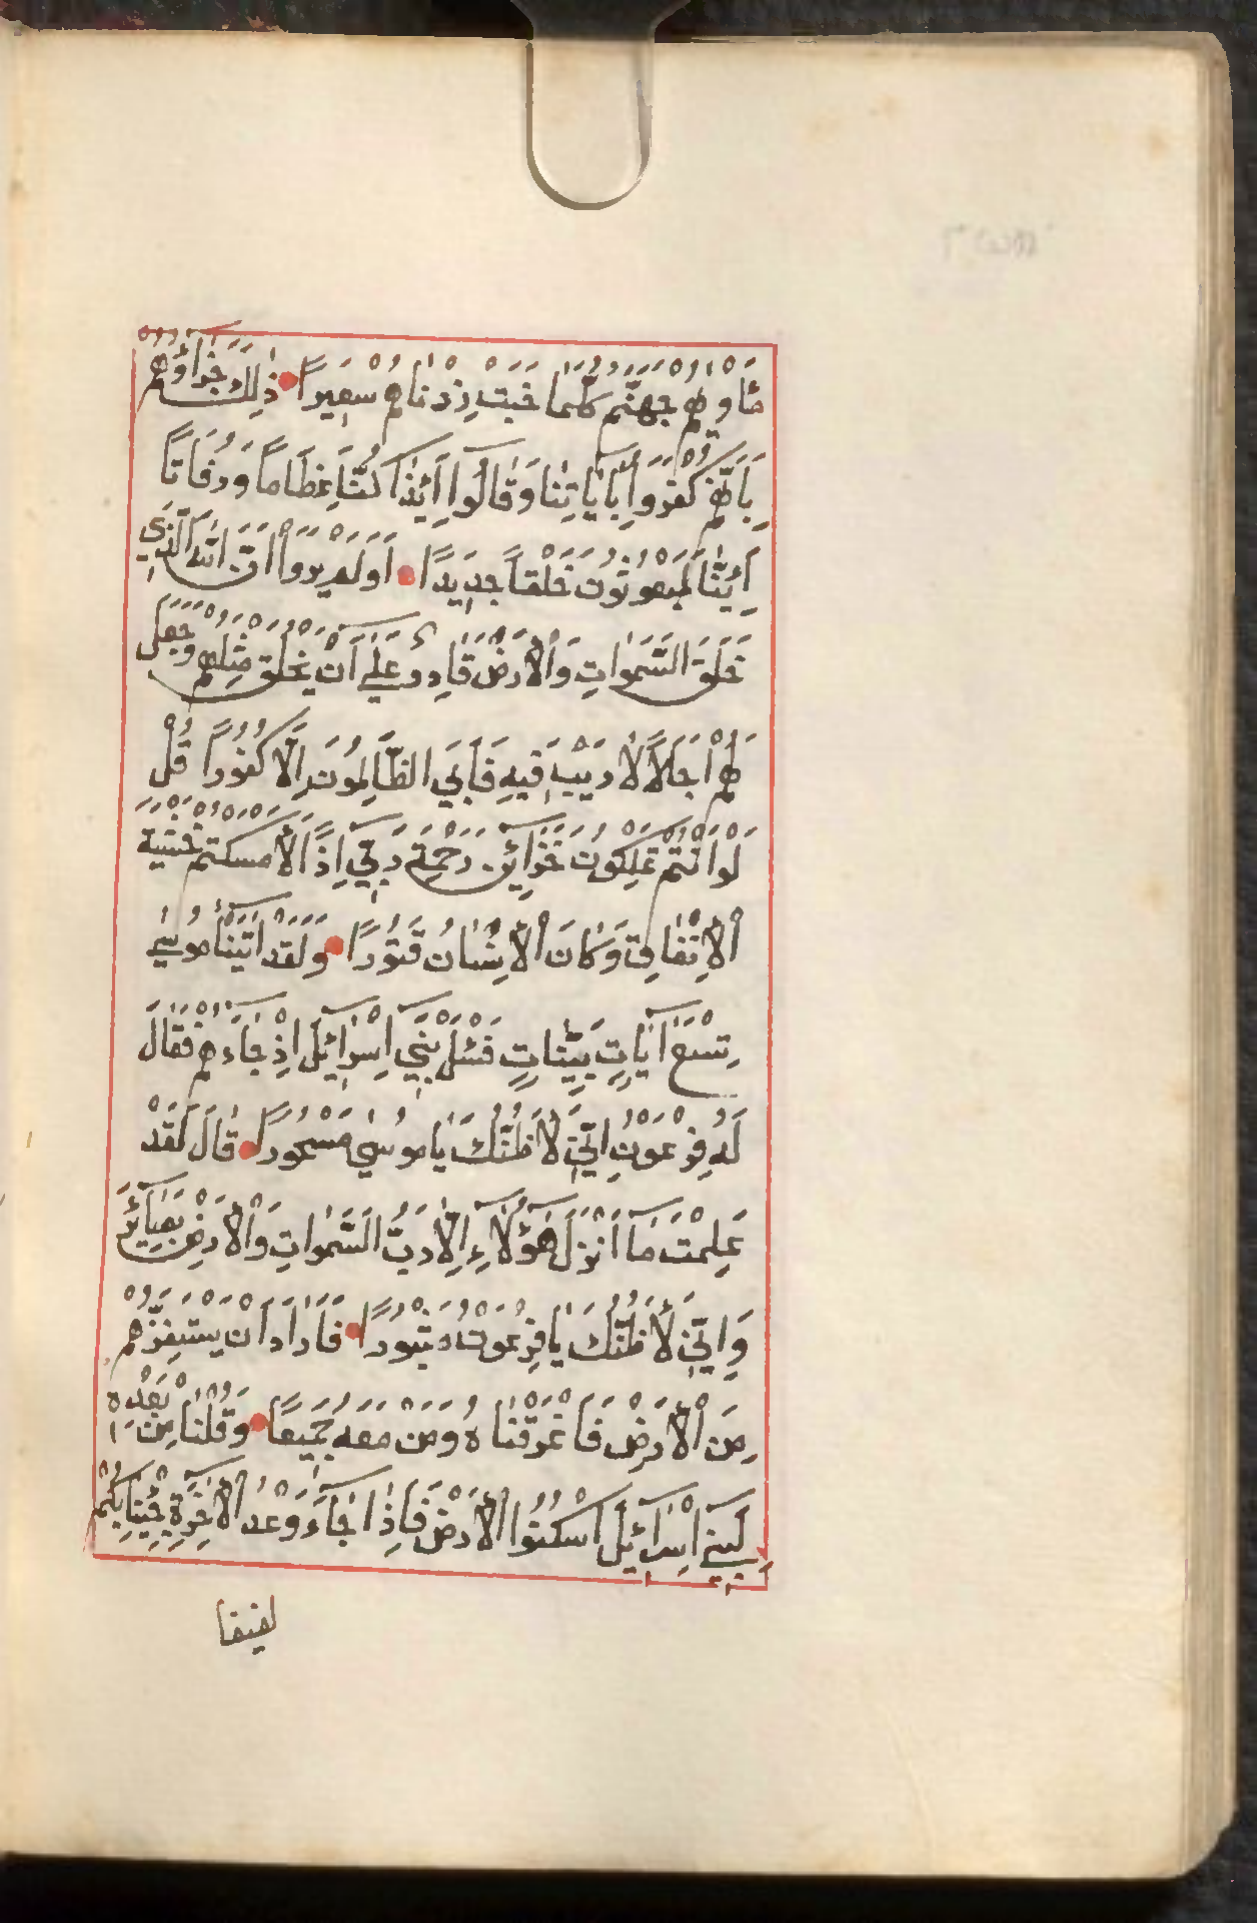 مَأْوٰيهُمْ جَهَنَّمُ كُلَّمَا خَبَتْ زِدْنَاهُمْ سَعِيرًا ذٰلِكَ جَزَآؤُهُمْ
بِاَنَّهُمْ كَفَرُوا بِاٰيَاتِنَا وَقَالُوٓا اَئِذَا كُنَّا عِظَامًا وَرُفَاتًا
اَئِنَّا لَمَبْعُوثُونَ خَلْقًا جَدِيدًا اَوَلَمْ يَرَوْا اَنَّ اللّٰهَ الَّذِي
خَلَقَ السَّمٰوَاتِ وَالْاَرْضَ قَادِرٌ عَلٰٓى اَنْ يَخْلُقَ مِثْلَهُمْ وَجَعَلَ
لَهُمْ اَجَلًا لَا رَيْبَ فِيهِ فَاَبَى الظَّالِمُونَ اِلَّا كُفُورًا قُلْ
لَوْ اَنْتُمْ تَمْلِكُونَ خَزَآئِنَ رَحْمَةِ رَبِّٓي اِذًا لَاَمْسَكْتُمْ خَشْيَةَ
الْاِنْفَاقِ وَكَانَ الْاِنْسَانُ قَتُورًا وَلَقَدْ اٰتَيْنَا مُوسٰى
تِسْعَ اٰيَاتٍ بَيِّنَاتٍ فَسْئَلْ بَنِٓي اِسْرَآئِيلَ اِذْ جَآءَهُمْ فَقَالَ
لَهُ فِرْعَوْنُ اِنِّي لَاَظُنُّكَ يَا مُوسٰى مَسْحُورًا قَالَ لَقَدْ
عَلِمْتَ مَا اَنْزَلَ هٰٓؤُلَآءِ اِلَّا رَبُّ السَّمٰوَاتِ وَالْاَرْضِ بَصَآئِرَ
وَاِنِّي لَاَظُنُّكَ يَا فِرْعَوْنُ مَثْبُورًا فَاَرَادَ اَنْ يَسْتَفِزَّهُمْ
مِنَ الْاَرْضِ فَاَغْرَقْنَاهُ وَمَنْ مَعَهُ جَمِيعًا وَقُلْنَا مِنْ بَعْدِهِ
لِبَنِٓي اِسْرَآئِيلَ اسْكُنُوا الْاَرْضَ فَاِذَا جَآءَ وَعْدُ الْاٰخِرَةِ جِئْنَا بِكُمْ
لفيفا